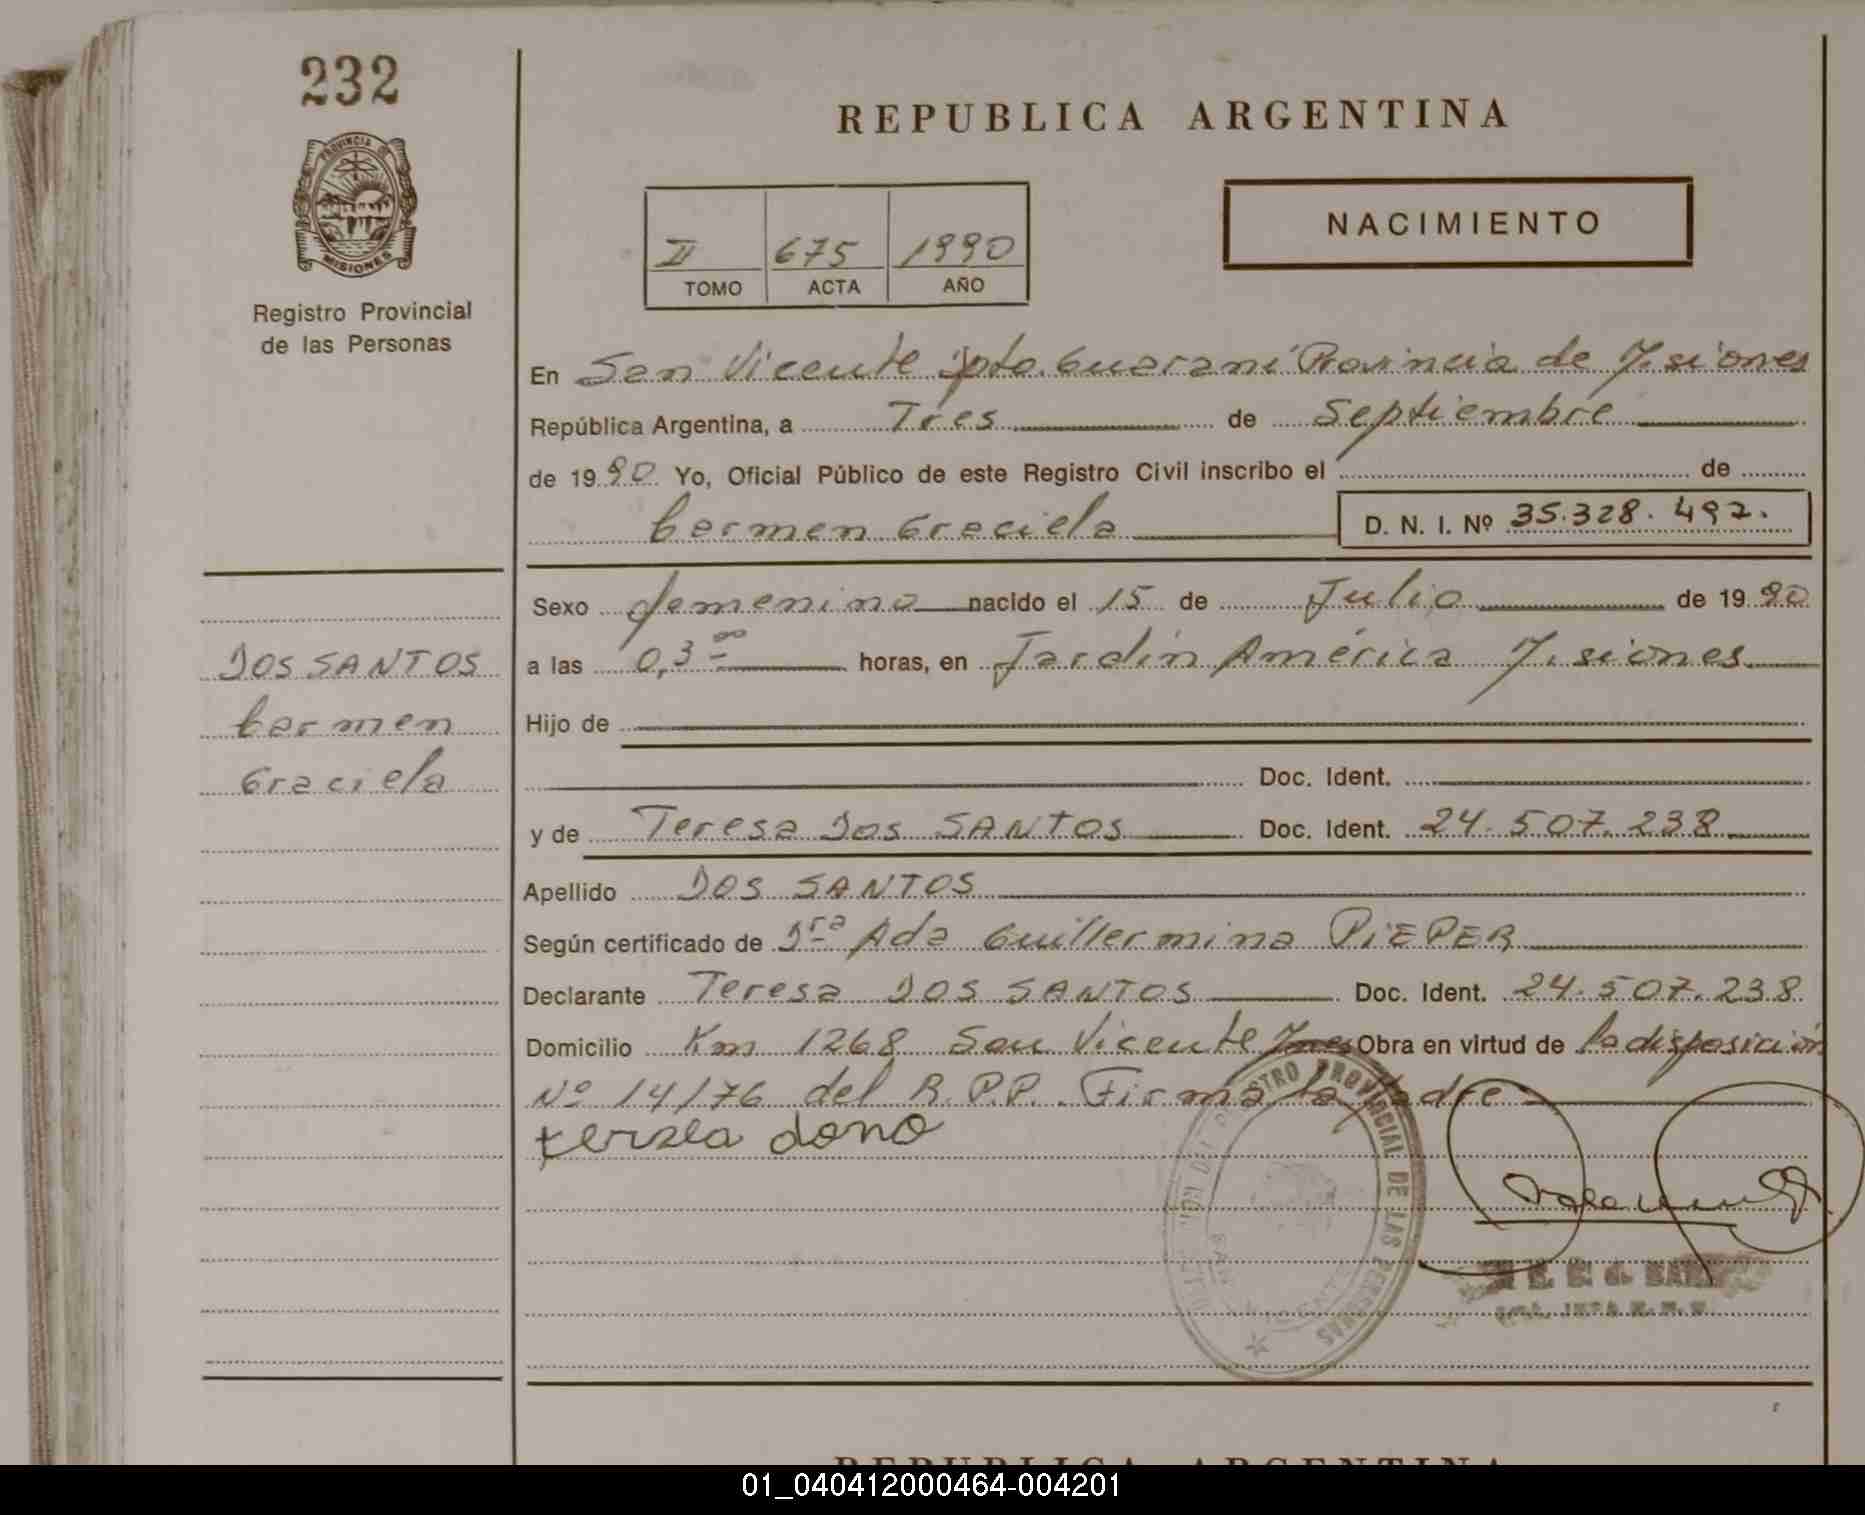 232
PROVINCIA DE
MISIONES
Registro Provincial
de las Personas
REPUBLICA ARGENTINA
II 675 1990
TOMO ACTA AÑO
NACIMIENTO
En San Vicente Dpto. Guaraní Provincia de Misiones
República Argentina, a Tres de Septiembre
de 1990 Yo, Oficial Público de este Registro Civil inscribo el de
Carmen Graciela D. N. I. Nº 35.328.492.
Sexo femenino nacido el 15 de Julio de 1990
a las 0,3 00 horas, en Jardín América Misiones
Hijo de
Doc. Ident.
y de Teresa Dos SANTOS Doc. Ident. 24.507.238
Apellido DOS SANTOS
Según certificado de Dra Ada Guillermina PiEPER
Declarante Teresa DOS SANTOS Doc. Ident. 24.507.238
Domicilio Km 1268 San Vicente Mnes Obra en virtud de la disposición
Nº 14/76 del R.P.P. Firma la Madre
DOS SANTOS
Carmen
Graciela
REGISTRO PROVINCIAL DE LAS PERSONAS
REPUBLICA ARGENTINA
01_040412000464-004201